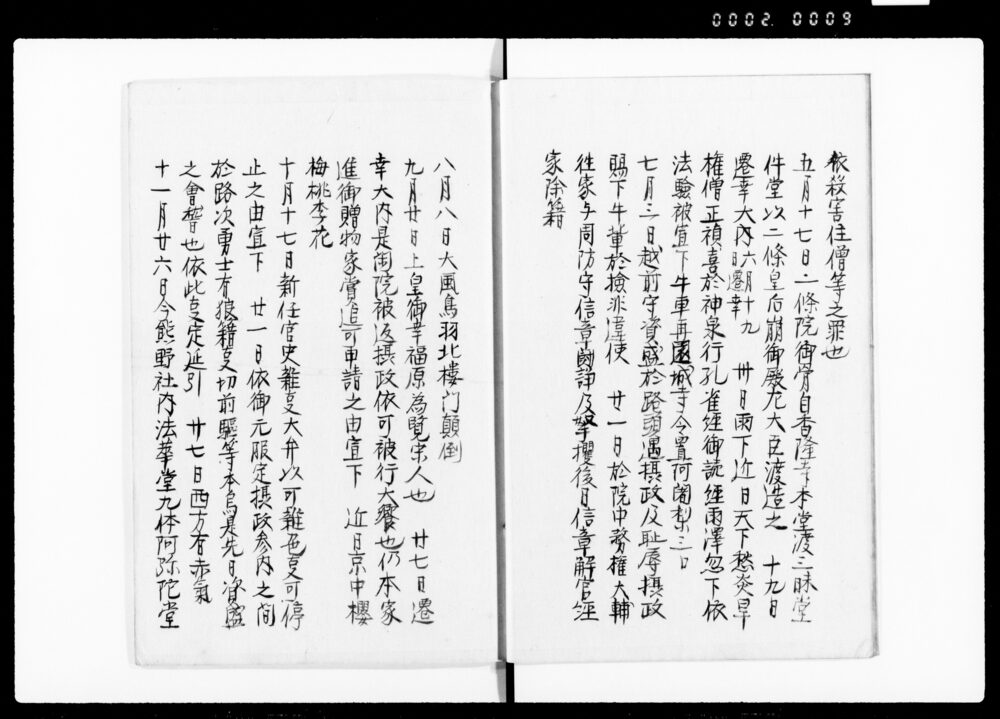 0002. 0009
依殺害住僧等之罪也
五月十七日二條院御骨自香隆寺本堂渡三昧堂
件堂以二條皇后崩御殿左大臣渡造之　十九日
遷幸大内六月廿九日還幸　卅日雨下近日天下愁炎旱
権僧正禎喜於神泉行孔雀経御読経雨澤忽下依
法驗被宣下牛車再園城寺令置阿闍梨三口
七月三日越前守資盛於路頭遇摂政及恥辱摂政
賜下牛輩於撿非違使　廿一日於院中務權大輔
経家与周防守信章闘諍及拏攫後日信章解官経
家除籍
八月八日大風鳥羽北樓門顛倒
九月廿日上皇御幸福原為覧宋人也　廿七日遷
幸大内是閑院被返摂政依可被行大饗也仍本家
進御贈物家賞追可申請之由宣下　近日京中櫻
梅桃李花
十月十七日新任官史雑亊大弁以可雜色亊可停
止之由宣下　廿一日依御元服定摂政参内之間
於路次勇士有狼籍亊切前驅等本鳥是先日資盛
之會稽也依此亊定延引　廿七日西方有赤氣
十一月廿六日今熊野社内法華堂九体阿弥陀堂